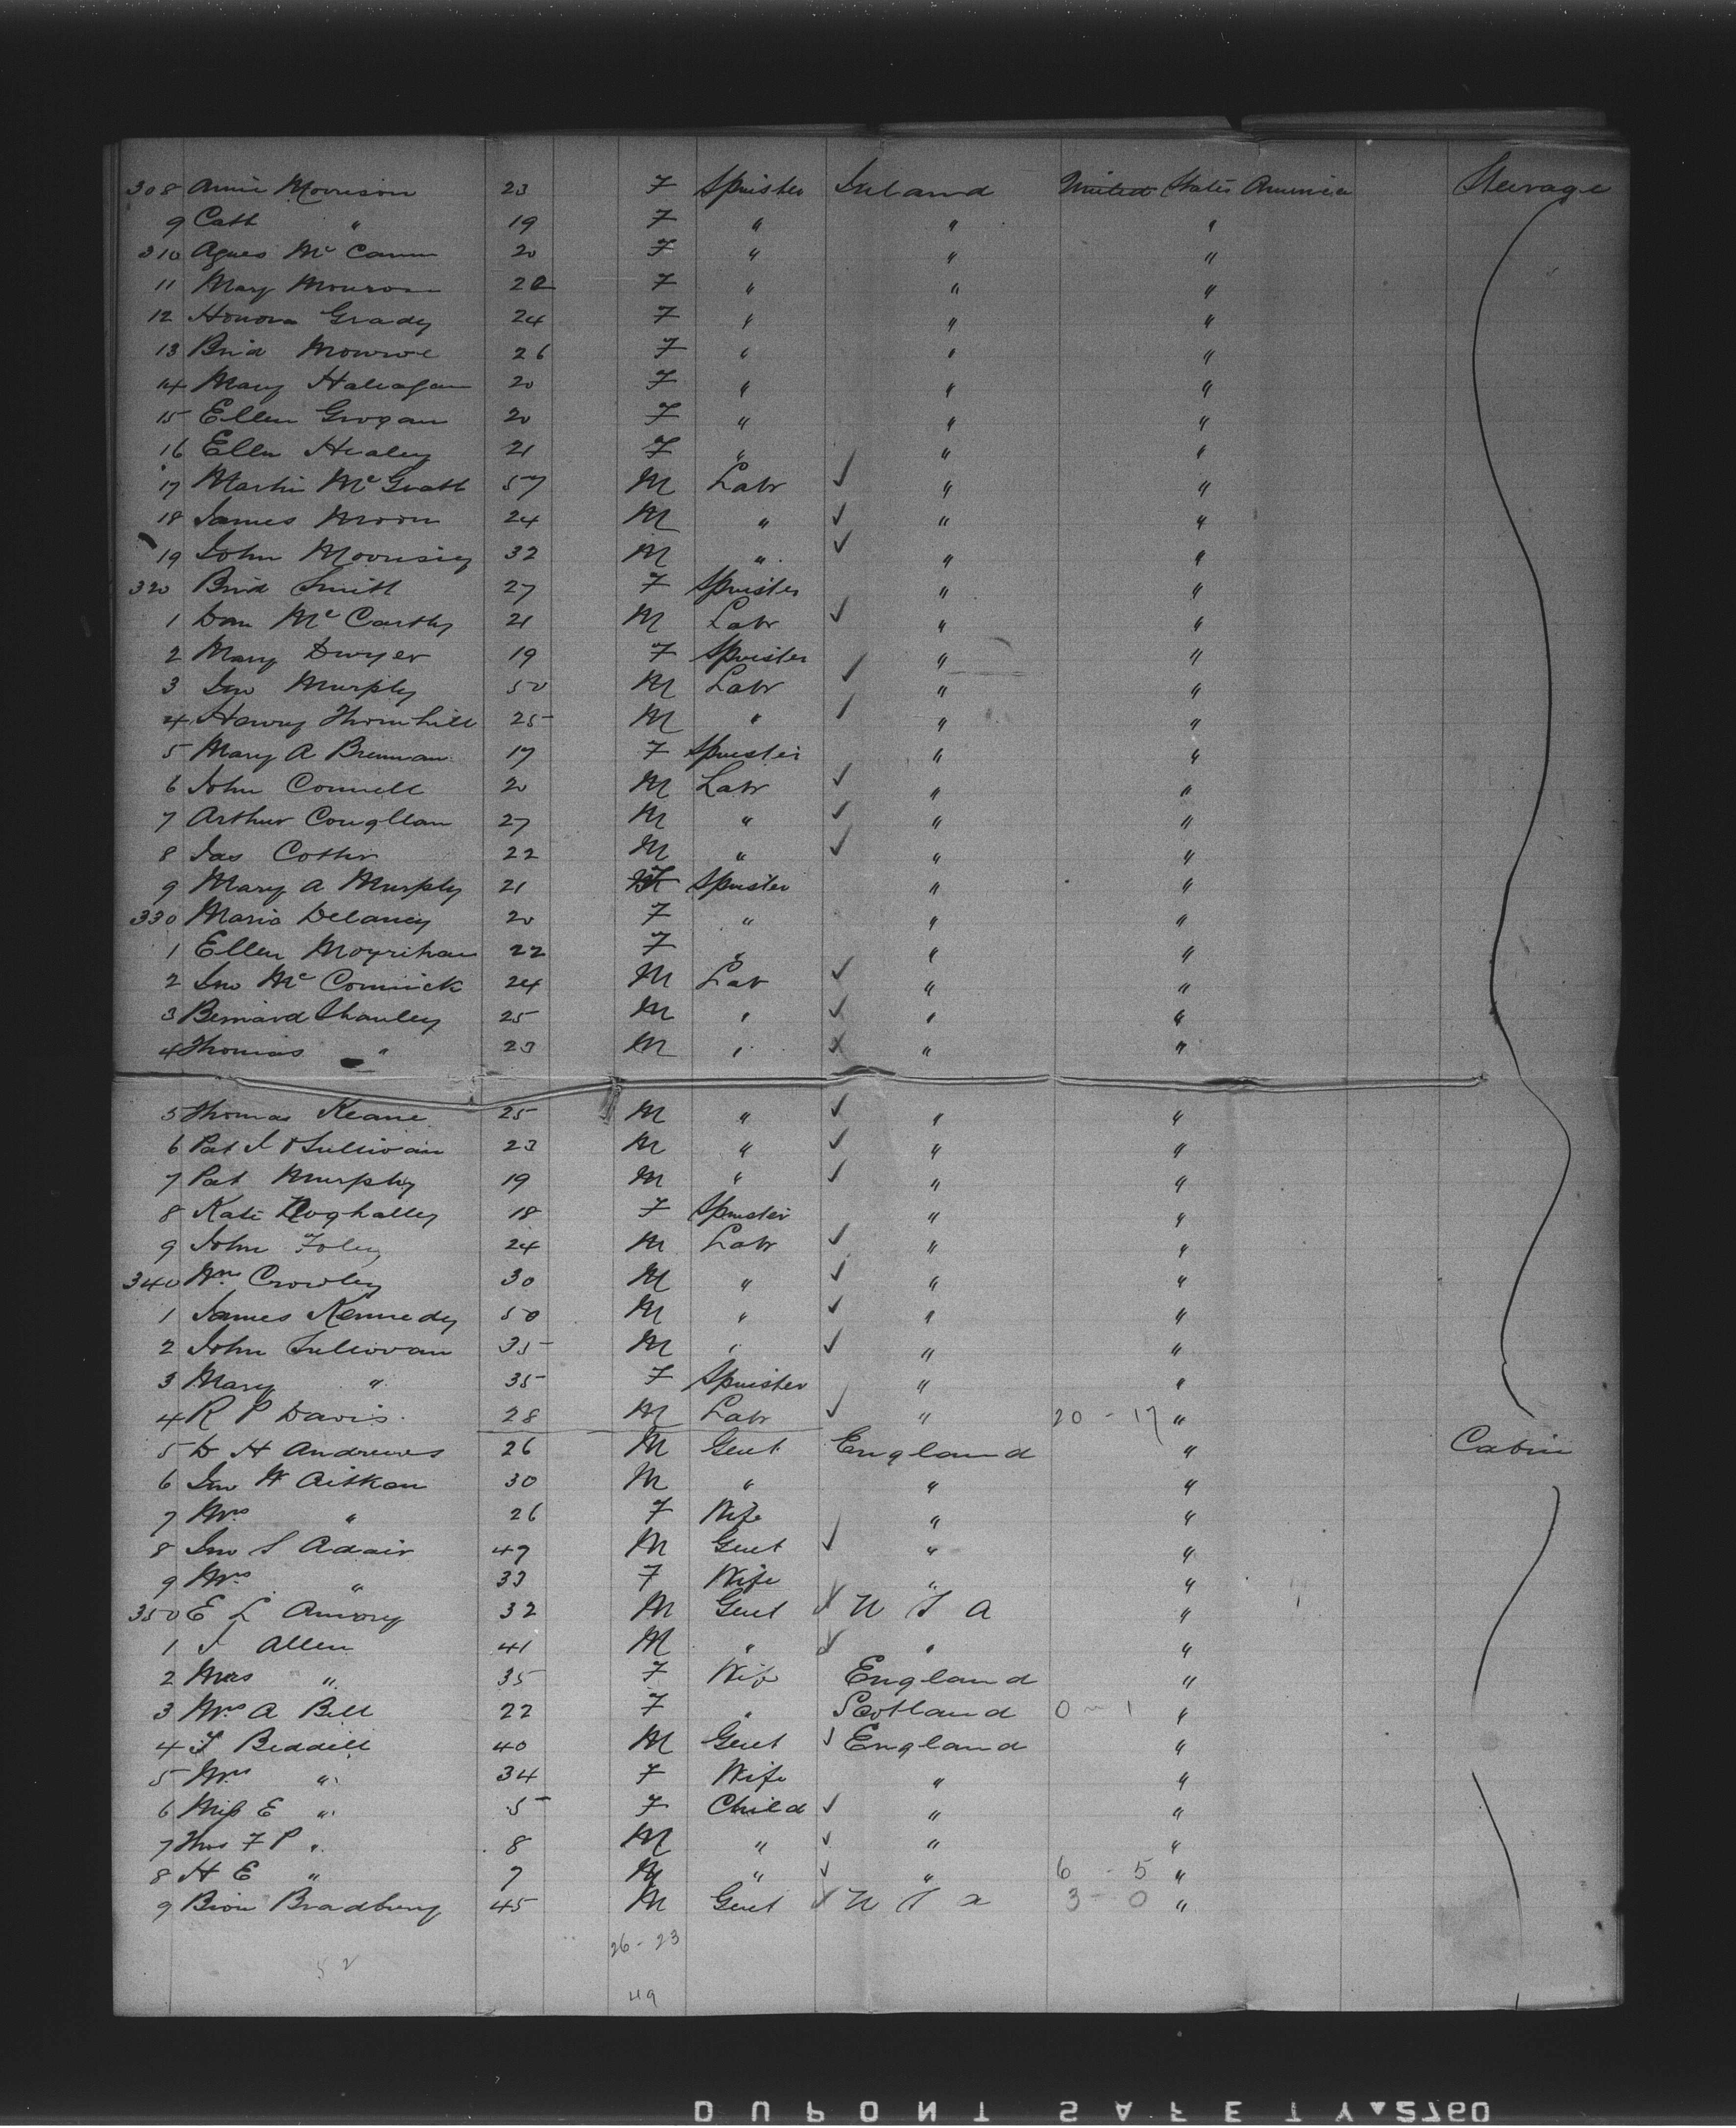 308 Annie Morrison 23 F Spinster Ireland United States America Steerage
9 Cath " 19 F " " "
310 Agnes Mc Cann 20 F " " "
11 Mary 22 F " " "
12 Honora Grady 24 F " " "
13 Brid Monroe 26 F " " "
14 Mary 20 F " " "
15 Ellen Grogan 20 F " " "
16 Ellen Healey 21 F " " "
17 Martin McGrath 57 M Labr ✓ " "
18 James Moon 24 M " ✓ " "
19 John 32 M " ✓ " "
320 Brid Smith 27 F Spinster " "
1 Dan McCarthy 21 M Labr ✓ " "
2 Mary Dwyer 19 F Spinster " "
3 Jno Murphy 50 M Labr ✓ " "
4 Henry Thornhill 25 M " ✓ " "
5 Mary A Brennan 17 F Spinster " "
6 John Connell 20 M Labr ✓ " "
7 Arthur Coughlan 27 M " ✓ " "
8 Jas Cotter 22 M " ✓ " "
9 Mary A Murphy 21 F Spinster " "
330 Maria Delaney 20 F " " "
1 Ellen Moynihan 22 F " " "
2 Jno McCormick 24 M Lab ✓ " "
3 Bernard Shanley 25 M " ✓ " "
4 Thomas " 23 M " x " "
5 Thomas Keane 25 M " ✓ " "
6 Pat J O'Sullivan 23 M " ✓ " "
7 Pat Murphy 19 M " ✓ " "
8 Kate 18 F Spinster " "
9 John Foley 24 M Labr ✓ " "
340 Wm Crowley 30 M " ✓ " "
1 James Kennedy 50 M " ✓ " "
2 John Sullivan 35 M " ✓ " "
3 Mary " 35 F Spinster " "
4 R P Davis 28 M Labr ✓ " 20 - 17 "
5 D H Andrews 26 M Gent England " Cabin
6 Jno W Aitkan 30 M " " "
7 Mrs " 26 F Wife " "
8 Jno S Adair 47 M Gent ✓ " "
9 Mrs " 33 F Wife " "
350 E L Amory 32 M Gent ✓ U S A "
1 J Allen 41 M " ✓ " "
2 Mrs " 35 F Wife England "
3 Mrs A Bell 22 F " Scotland 0 - 1 "
4 T Beddell 40 M Gent ✓ England "
5 Mrs " 34 F Wife " "
6 Miss E " 5 F Child ✓ " "
7 Thos F P " 8 M " ✓ " "
8 H E " 7 M " ✓ " 6 - 5 "
9 Bion Bradbury 45 M Gent ✓ U S A 3 - 0 "
26 - 23
52
49
DUPONT SAFETY 2760